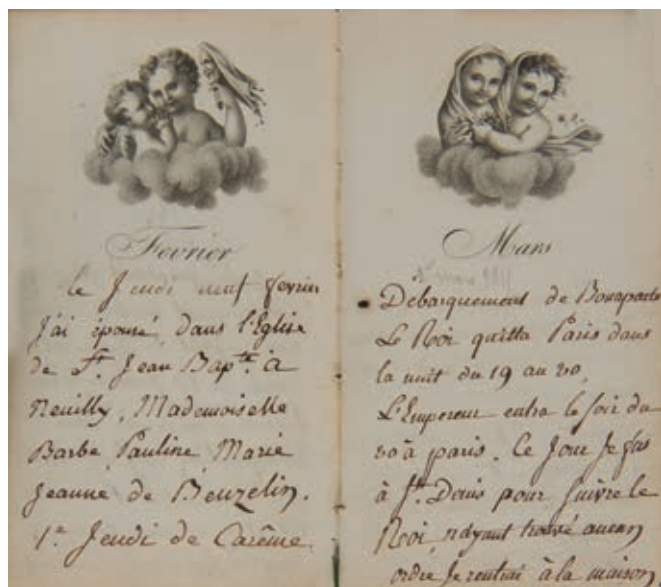 Fevrier
le Jeudi neuf fevrier
J'ai épousé, dans l'Eglise
de St. Jean Bapte. à
Neuilly, Mademoiselle
Barbe, Pauline, Marie
Jeanne de Beuzelin.
1er Jeudi de Carême.
Mars
mars
Debarquement de Bonaparte
Le Roi quitta Paris dans
la nuit du 19 au 20,
L'Empereur entra le soir du
20 à paris. Ce jour Je fus
à St. Denis pour suivre le
Roi, n'ayant trouvé aucun
ordre Je rentrai à la maison